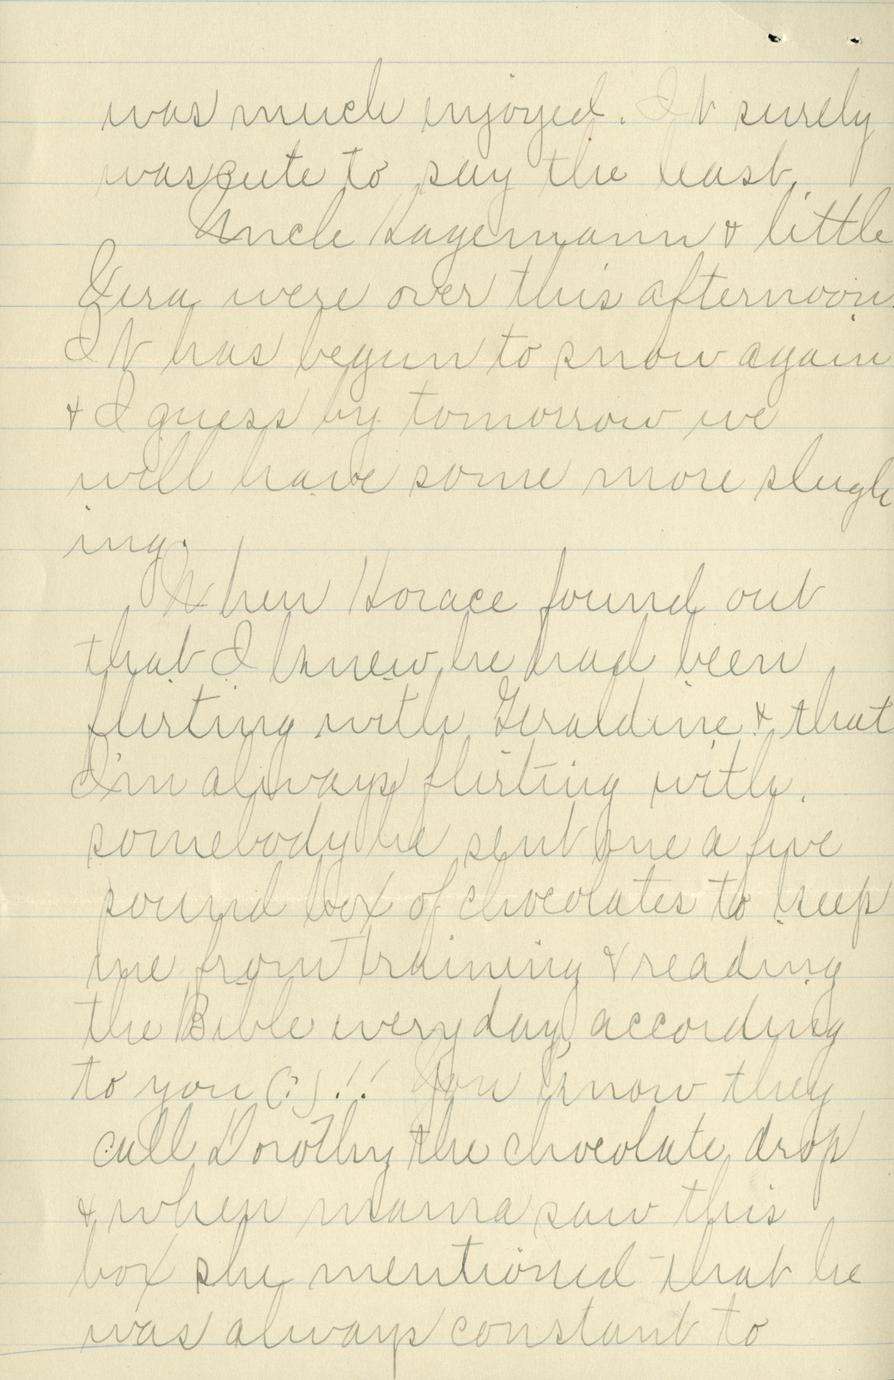 was much enjoyed. It surely
was cute to say the least.
Uncle Hagemann & little
Zera were over this afternoon.
It has begun to snow again
& I guess by tomorrow we
will have some more sleigh
ing.
When Horace found out
that I knew he had been
flirting with Geraldine & that
I'm always flirting with
somebody he sent me a five
pound box of chocolates to keep
me from training & reading
the Bible everyday, according
to you (?)!! You know they
call Dorothy the chocolate drop
& when mama saw this
box she mentioned that he
was always constant to